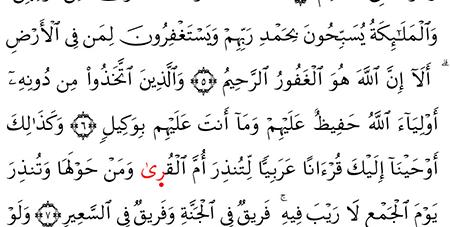 وَٱلْمَلَـٰٓئِكَةُ يُسَبِّحُونَ بِحَمْدِ رَبِّهِمْ وَيَسْتَغْفِرُونَ لِمَن فِى ٱلْأَرْضِ
ۗ أَلَآ إِنَّ ٱللَّهَ هُوَ ٱلْغَفُورُ ٱلرَّحِيمُ ﴿٥﴾ وَٱلَّذِينَ ٱتَّخَذُوا۟ مِن دُونِهِۦٓ
أَوْلِيَآءَ ٱللَّهُ حَفِيظٌ عَلَيْهِمْ وَمَآ أَنتَ عَلَيْهِم بِوَكِيلٍ ﴿٦﴾ وَكَذَٰلِكَ
أَوْحَيْنَآ إِلَيْكَ قُرْءَانًا عَرَبِيًّا لِّتُنذِرَ أُمَّ ٱلْقُرِىٰ وَمَنْ حَوْلَهَا وَتُنذِرَ
يَوْمَ ٱلْجَمْعِ لَا رَيْبَ فِيهِ ۚ فَرِيقٌ فِى ٱلْجَنَّةِ وَفَرِيقٌ فِى ٱلسَّعِيرِ ﴿٧﴾ وَلَوْ